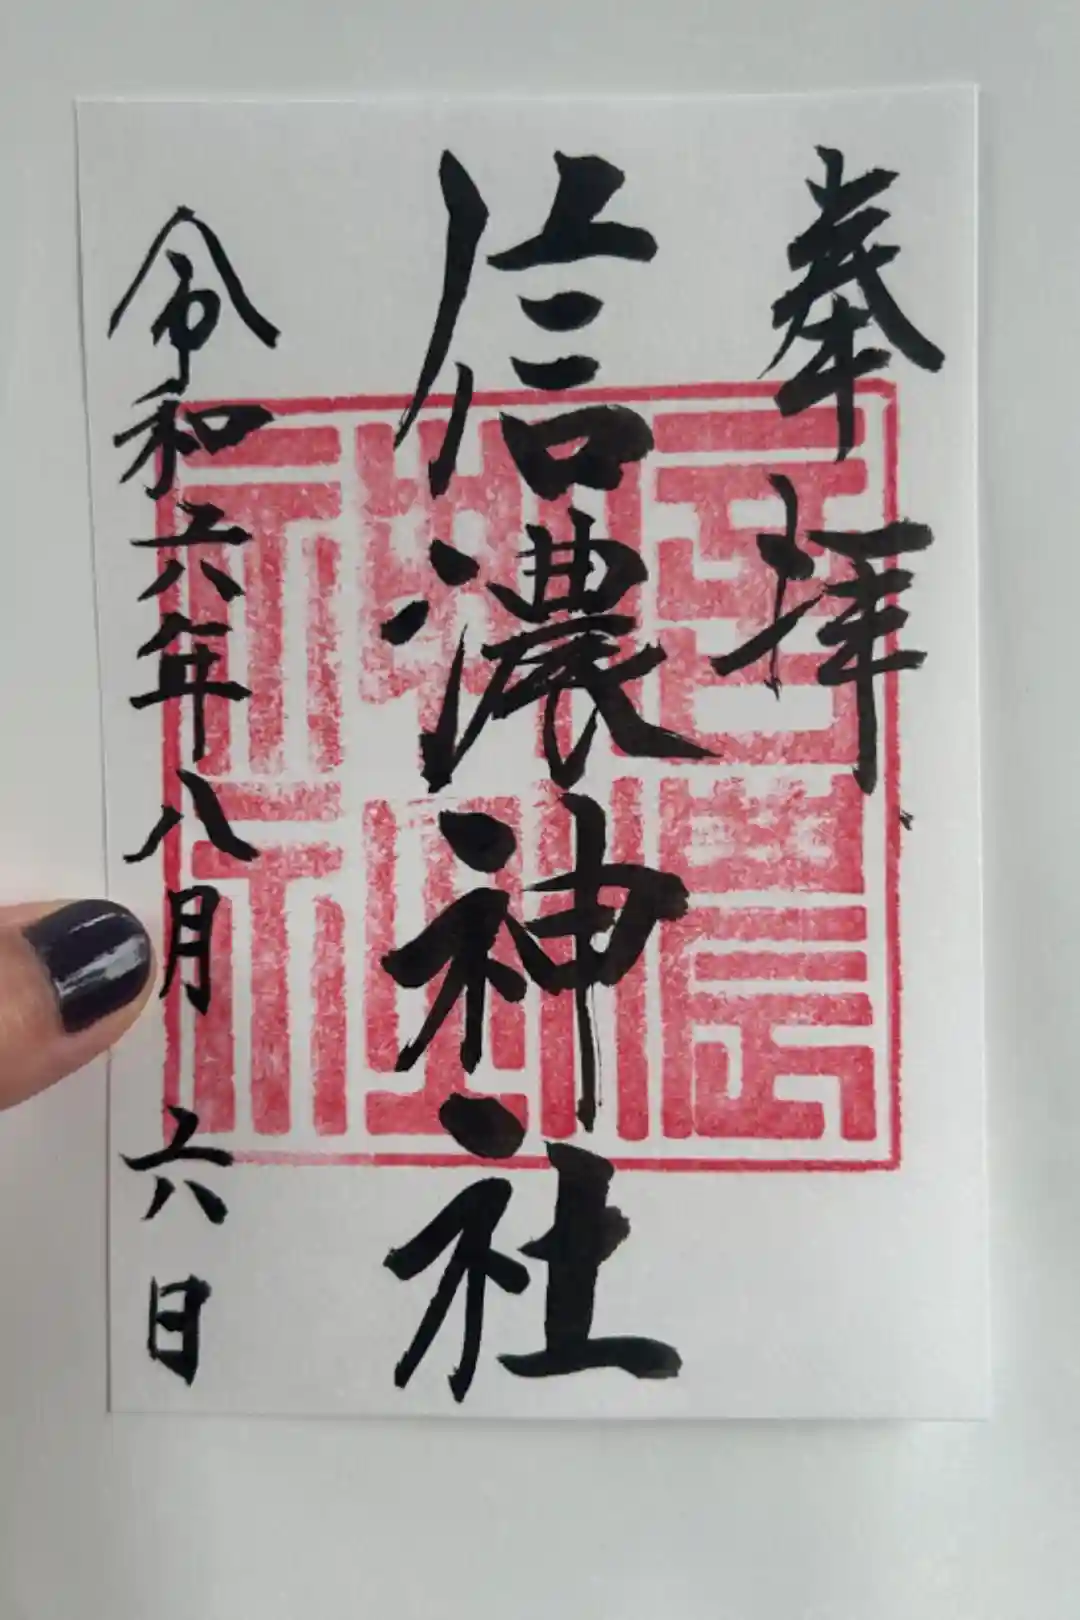 奉拝
信濃神社
令和六年八月六日
信濃神社